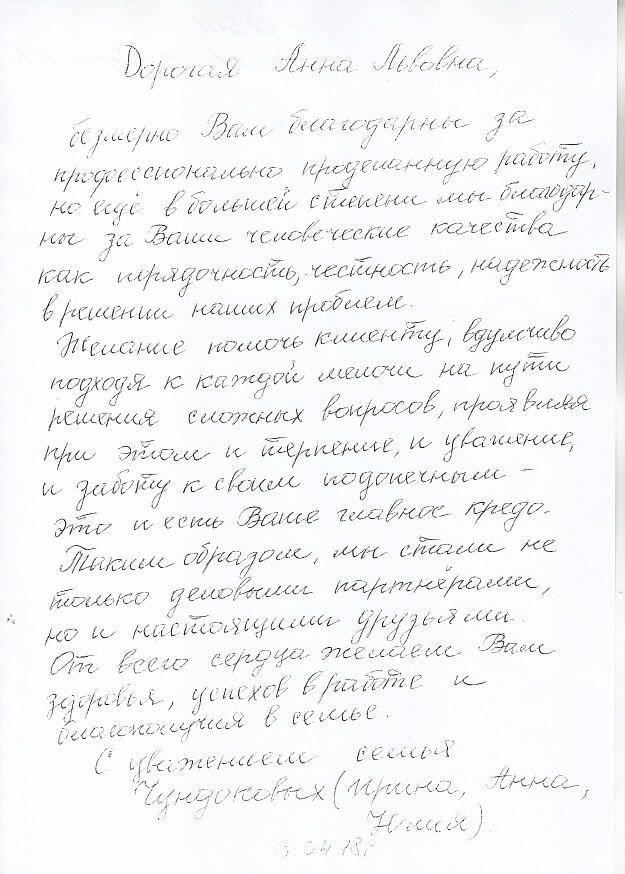 Дорогая Анна Львовна,
безмерно Вам благодарны за
профессионально проделанную работу,
но ещё в большей степени мы благодар-
ны за Ваши человеческие качества
как порядочность, честность, надежность
в решении наших проблем.
Желание помочь клиенту, вдумчиво
подходя к каждой мелочи на пути
решения сложных вопросов, проявляя
при этом и терпение, и уважение,
и заботу к своим подопечным –
это и есть Ваше главное кредо.
Таким образом, мы стали не
только деловыми партнёрами,
но и настоящими друзьями.
От всего сердца желаем Вам
здоровья, успехов в работе и
благополучия в семье.
С уважением семья
Чундоковых (Ирина, Анна,
Юлия).
3.04.18г